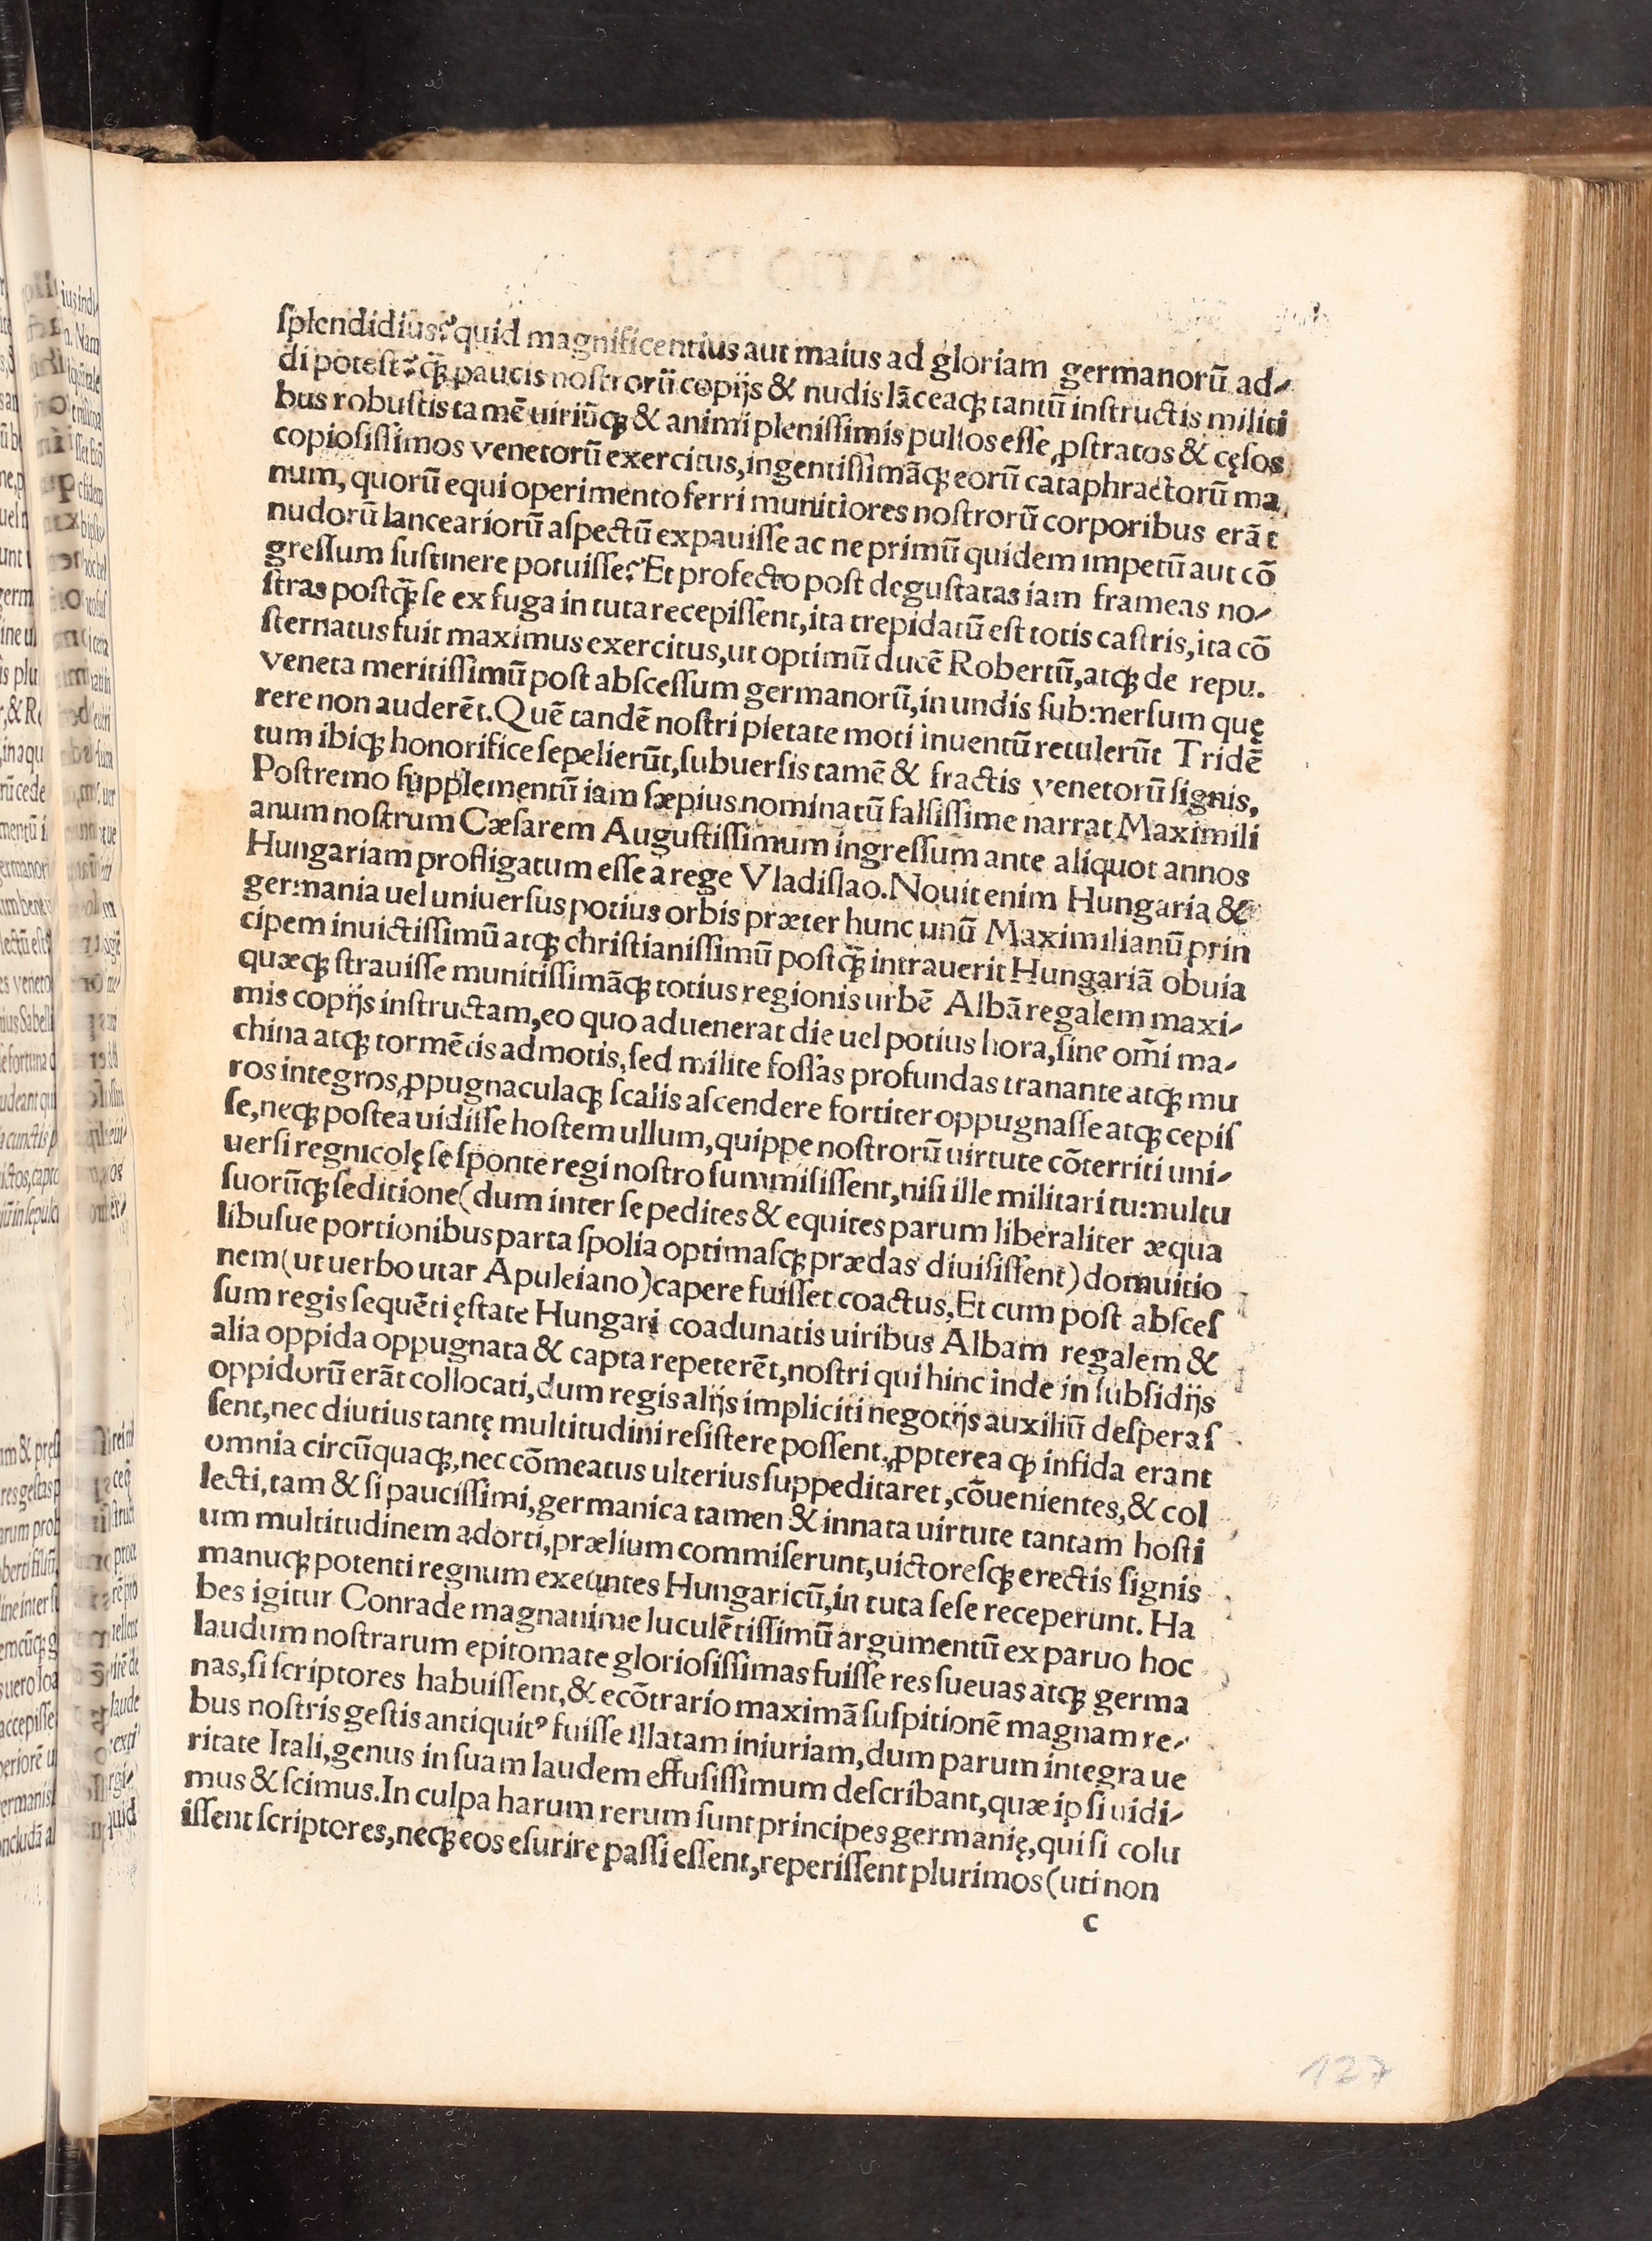 ſplendidius? quid magnificentius aut maius ad gloriam germanorū ad-
di poteſt? ꝙ̃ paucis noſtrorū copijs & nudis lāceaqꝫ tantū inſtructis militi
bus robuſtis tamē uiriūqꝫ & animi pleniſſimis pulſos eſſe, ꝓſtratos & cęſos
copioſiſſimos venetorū exercitus, ingentiſſimāqꝫ eorū cataphractorū ma
num, quorū equi operimento ferri munitiores noſtrorū corporibus erāt
nudorū lanceariorū aſpectū expauiſſe ac ne primū quidem impetū aut cō
greſſum ſuſtinere potuiſſe? Et profecto poſt deguſtatas iam frameas no-
ſtras poſtꝙ̃ ſe ex fuga in tuta recepiſſent, ita trepidatū eſt totis caſtris, ita cō
ſternatus fuit maximus exercitus, ut optimū ducē Robertū, atqꝫ de repu.
veneta meritiſſimū poſt abſceſſum germanorū, in undis ſubmerſum quę
rere non auderēt. Quē tandē noſtri pietate moti inuentū retulerūt Tridē
tum ibiqꝫ honorifice ſepelierūt, ſubuerſis tamē & fractis venetorū ſignis,
Poſtremo ſupplementū iam ſæpius nominatū falſiſſime narrat Maximili
anum noſtrum Cæſarem Auguſtiſſimum ingreſſum ante aliquot annos
Hungariam profligatum eſſe a rege Vladiſlao. Nouit enim Hungaria &
germania uel uniuerſus potius orbis præter hunc unū Maximilianū prin
cipem inuictiſſimū atqꝫ chriſtianiſſimū poſtꝙ̃ intrauerit Hungariā obuia
quæqꝫ ſtrauiſſe munitiſſimāqꝫ totius regionis urbē Albā regalem maxi-
mis copijs inſtructam, eo quo aduenerat die uel potius hora, ſine om̄i ma-
china atqꝫ tormētis admotis, ſed milite foſſas profundas tranante atqꝫ mu
ros integros, ꝓpugnaculaqꝫ ſcalis aſcendere fortiter oppugnaſſe atqꝫ cepiſ
ſe, neqꝫ poſtea uidiſſe hoſtem ullum, quippe noſtrorū uirtute cōterriti uni-
uerſi regnicolę ſe ſponte regi noſtro ſummiſiſſent, niſi ille militari tumultu
ſuorūqꝫ ſeditione (dum inter ſe pedites & equites parum liberaliter æqua
libuſue portionibus parta ſpolia optimaſqꝫ prædas diuiſiſſent) domuitio
nem (ut uerbo utar Apuleiano) capere fuiſſet coactus, Et cum poſt abſceſ
ſum regis ſequēti ęſtate Hungari coadunatis uiribus Albam regalem &
alia oppida oppugnata & capta repeterēt, noſtri qui hinc inde in ſubſidijs
oppidorū erāt collocati, dum regis alijs impliciti negotijs auxiliū deſperaſ
ſent, nec diutius tantę multitudini reſiſtere poſſent, ꝓpterea ꝙ infida erant
omnia circūquaqꝫ, nec cōmeatus ulterius ſuppeditaret, cōuenientes, & col
lecti, tam & ſi pauciſſimi, germanica tamen & innata uirtute tantam hoſti
um multitudinem adorti, prælium commiſerunt, uictoreſqꝫ erectis ſignis
manuqꝫ potenti regnum exeuntes Hungaricū, in tuta ſeſe receperunt. Ha
bes igitur Conrade magnanime luculētiſſimū argumentū ex paruo hoc
laudum noſtrarum epitomate glorioſiſſimas fuiſſe res ſueuas atqꝫ germa
nas, ſi ſcriptores habuiſſent, & ecōtrario maximā ſuſpitionē magnam re-
bus noſtris geſtis antiquitꝰ fuiſſe illatam iniuriam, dum parum integra ue
ritate Itali, genus in ſuam laudem effuſiſſimum deſcribant, quæ ipſi uidi-
mus & ſcimus. In culpa harum rerum ſunt principes germanię, qui ſi colu
iſſent ſcriptores, neqꝫ eos eſurire paſſi eſſent, reperiſſent plurimos (uti non
c
127